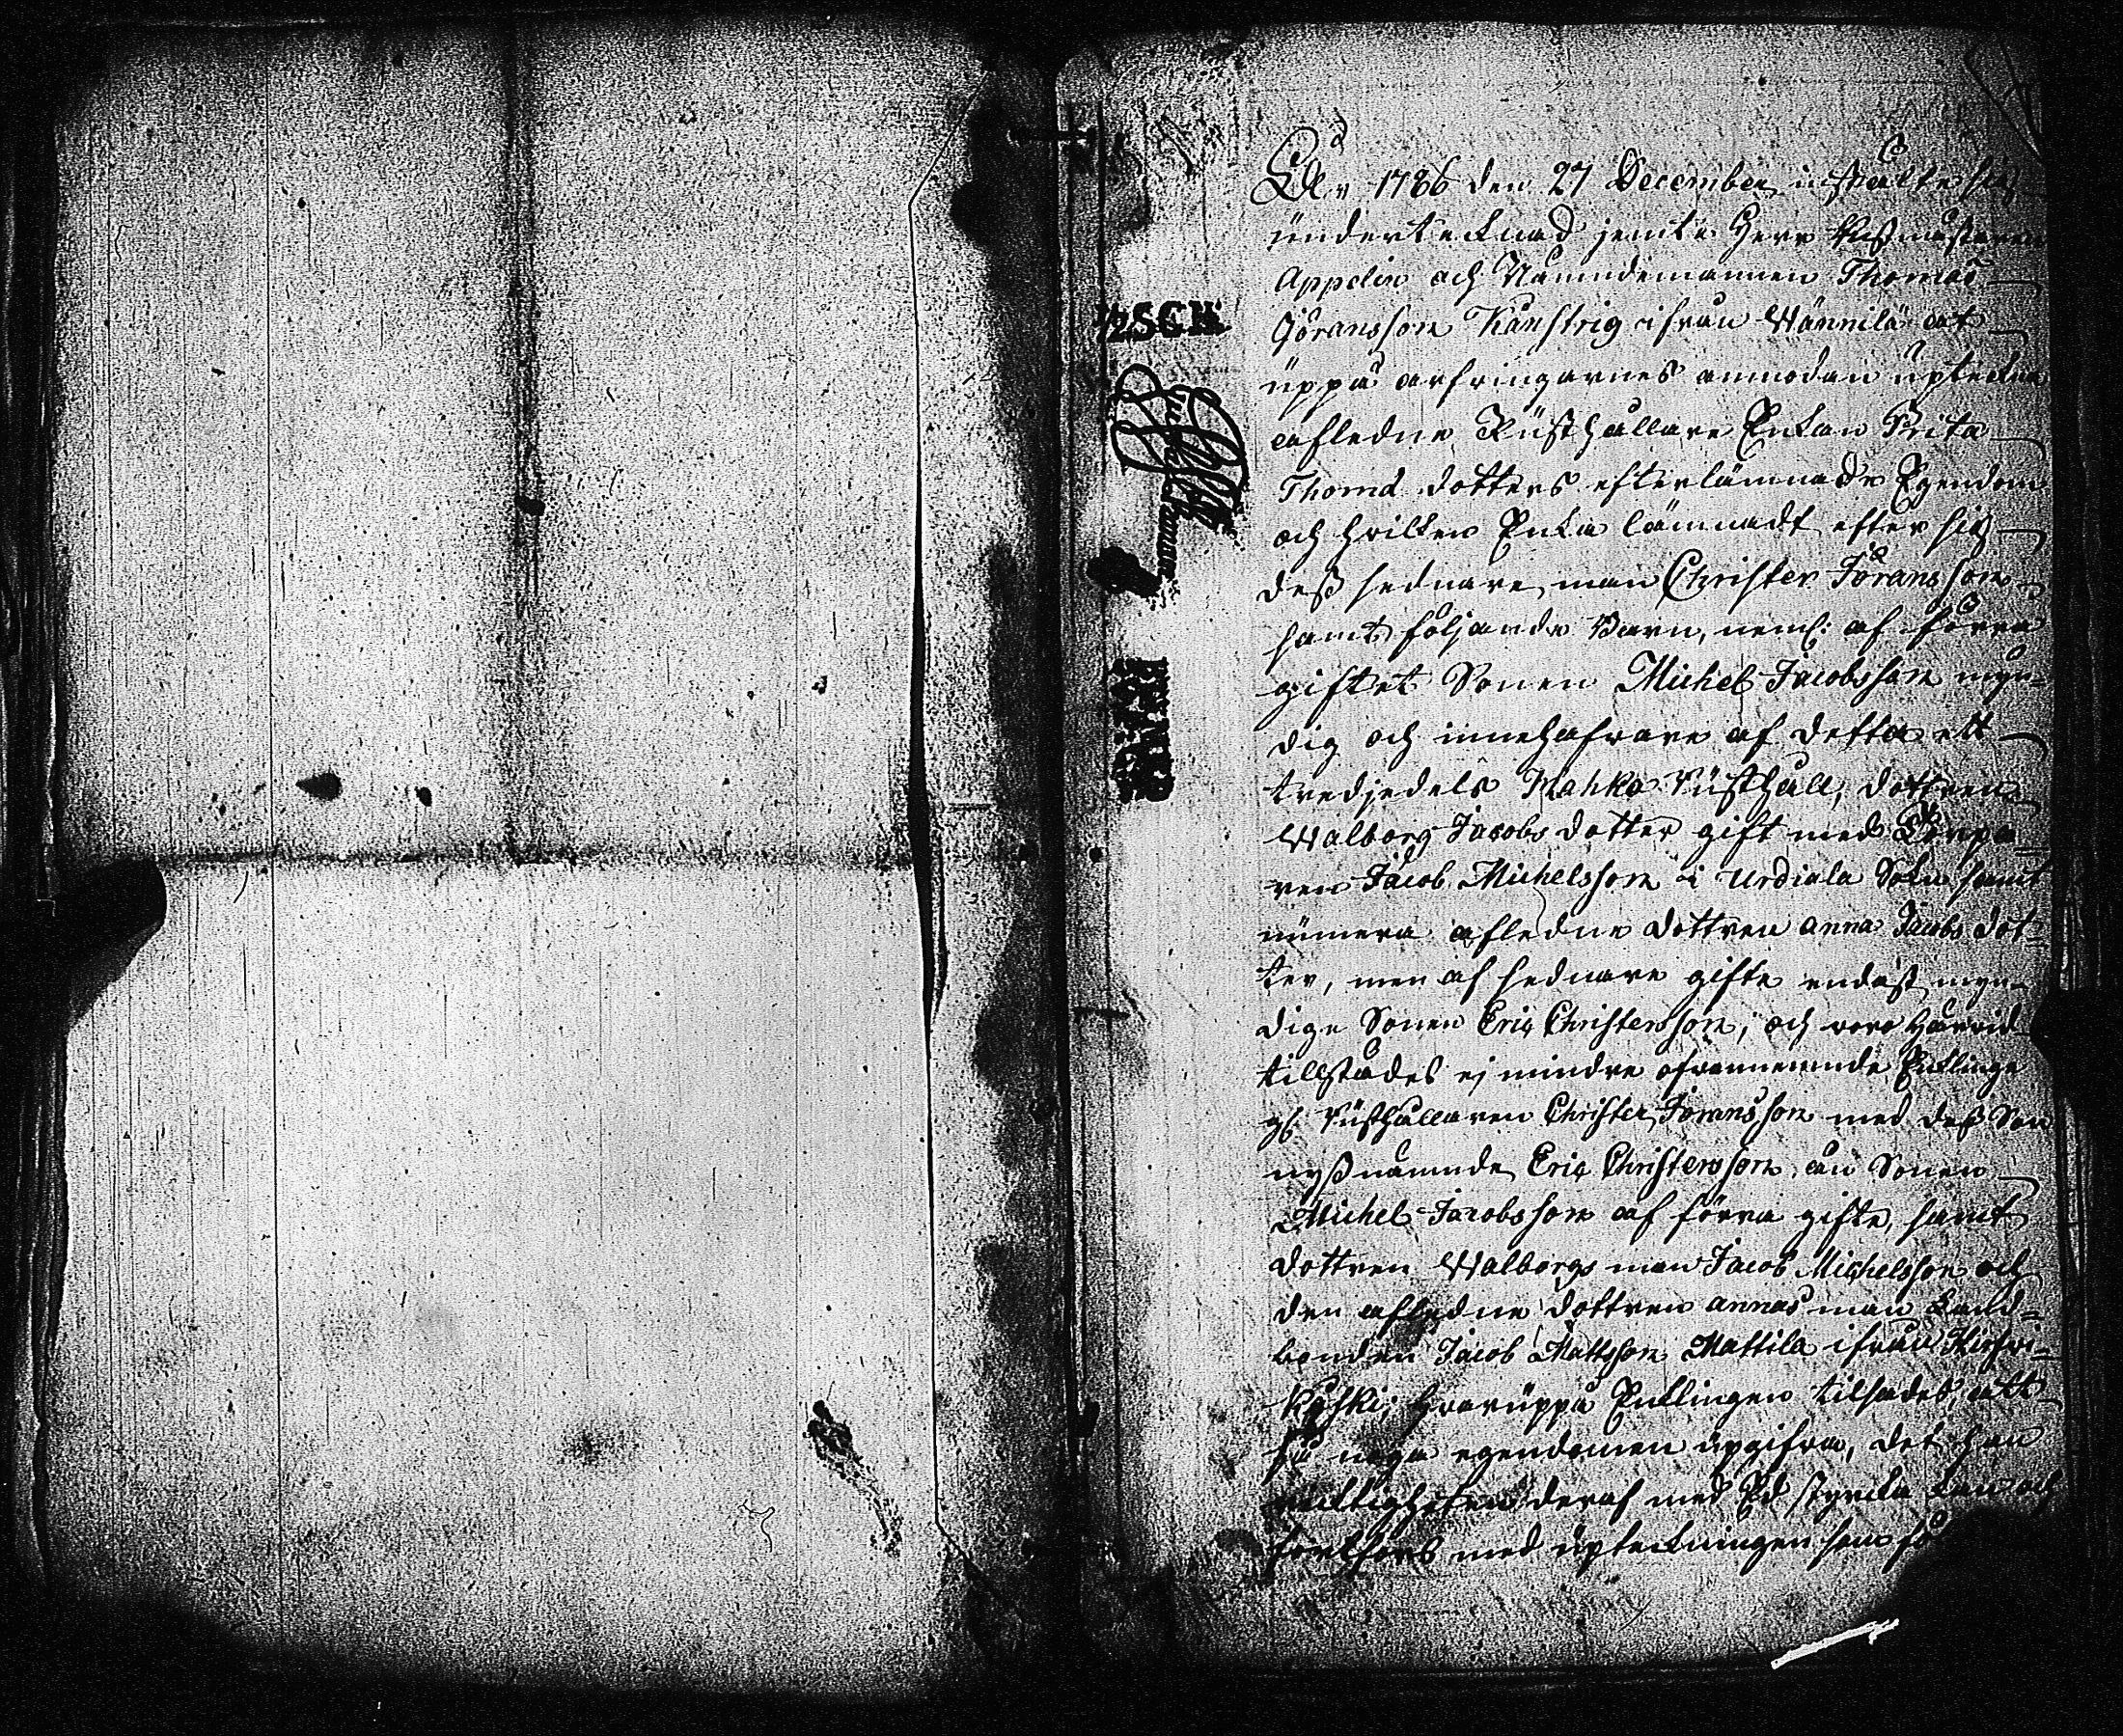 1786 den 27 December instälte sig
undertecknad jemte Herr
Appelin och Nämndemannen Thomas
Göransson Kanstrig ifrån Wännilä at
uppå arfvingarnes anmodan upteckna
afledne Rusthållare Enkan Brita
Thomæ dotters efterlämnade Egendom
och hvilken Enka lämnadt efter sig
dess sednare man Christer Jöransson
samt följande Barn, neml: af förra
giftet Sonen Michel Jacobsson myn-
dig och innehafvare af detta ett
tredjedels Mahko Rusthåll, dottren
Walborg Jacobs dotter gift med
ren Jacob Michelsson i Urdiala Sokn samt
numera afledne dottren Anna Jacobs dot-
ter, men af sednare gifte endast myn-
dige Sonen Eric Christersson, och voro härvid
tillstädes ej mindre ofvannemnde Enklinge
Rusthållaren Christer Jöransson med dess Son
nyssnämnde Eric Christersson, än Sonen
Michel Jacobsson af förra gifte, samt
dottren Walborgs man Jacob Michelsson och
den afledne dottren Annas man Land-
bonden Jacob Mattsson Mattila ifrån Kirfvi-
koski; hvaruppå Enklingen tilsades, att
så noga egendomen upgifva, det han
riktigheten deraf med Ed styrcka kan och
fortfors med upteckningen som